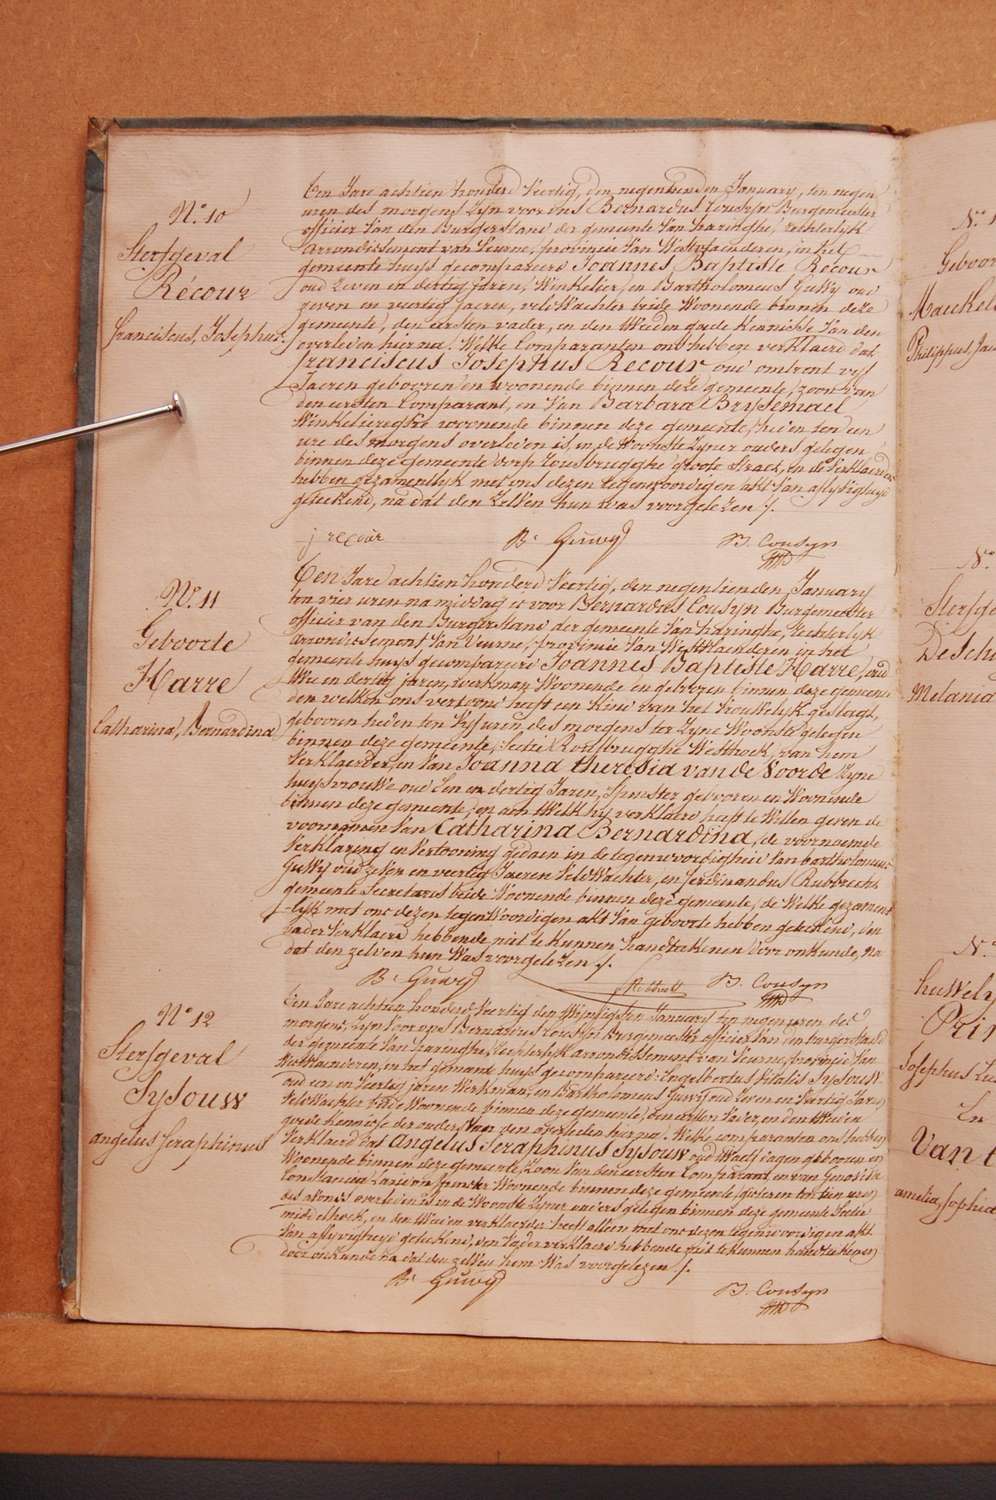 N.º 10
Sterfgeval
Récour
franciscus, Josephus.
Een Jare achtien honderd Veertig, den negentienden January, ten negen
uren des morgens zyn voor ons Bernardus Cousyn Burgemeester
officier Van den Burgerstand der gemeente Van haringhe, rechterlyk
Arrondissement van Veurne, provincie Van Westvlaenderen, in het
gemeente huys gecompareerd Joannes Baptiste Récour
oud zeven en dertig jaren, Winkelier, en Bartholomeus Guwy oud
zeven en veertig jaeren, veld Wachter beide Woonende binnen deze
gemeente, den eersten vader, en den tweeden goede kennisse Van den
overleden hierna. Welke Comparanten ons hebben verklaerd dat
franciscus Josephus Recour oud omtrent vyf
Jaeren gebooren en woonende binnen deze gemeente, zoon van
den eersten Comparant, en Van Barbara Brysemael
Winkelierghe woonende binnen deze gemeente, heden ten een
ure des morgens overleden is, in de Woonste Zyner ouders gelegen
binnen deze gemeente dorp rousbrugghe groote Straet, en de Verklaerders
hebben gezamentlyk met ons dezen tegenwoordigen akt Van aflyvigheyd
geteekend, na dat den zelven hun was voorgelezen /.
j recour
B. Guwy
B. Cousyn
N.º 11
Geboorte
Harre
Catharina, Bernardina
Een Jare achtien honderd Veertig, den negentienden January
ten vier uren na middag is voor Bernardus Cousyn Burgemeester
officier van den Burgerstand der gemeente Van haringhe, rechterlyk
Arrondissement Van Veurne, provincie Van Westvlaenderen in het
gemeente huys gecompareerd Joannes Baptiste Harre, oud
twee en dertig jaren, werkman Woonende en geboren binnen deze gemeente
den welken ons vertoond heeft een Kind van het Vrouwelyk geslagt,
gebooren heden ten Vyf uren des morgens ter Zyne Woonste gelegen
binnen deze gemeente, Sectie Rousbrugghe Westhoek, van hem
Verklaerder, en Van Joanna theresia van de Voorde Zyne
huysvrouwe oud Een en dertig Jaren, Spinster geboren en Woonende
binnen deze gemeente, en aen Welk hy verklaerd heeft te Willen geven de
voornamen Van Catharina Bernardina, de voornoemde
Verklaring en Vertooning gedaen in de tegenwoordigheid Van bartholomeus
Guwy oud zeven en veertig Jaeren Veld Wachter, en ferdinandus Rubbrecht
gemeente Secretaris beide Woonende binnen deze gemeente, de Welke gezament
-lyk met ons dezen tegenwoordigen akt Van geboorte hebben geteekend, den
vader Verklaerd hebbende niet te kunnen handteekenen door onkunde, na
dat den zelven hun Was voorgelezen /.
B. Guwy
B. Cousyn
N.º 12
Sterfgeval
Sysouw
angelus Seraphinus
Een Jare achtien honderd Veertig den twintigsten January ten negen uren des
morgens, Zyn voor ons Bernardus Cousyn Burgemeester officier Van den burgerstand
der gemeente Van haringhe, rechterlyk arrondissement van Veurne, provincie Van
Westvlaenderen, in het gemeente huys gecompareerd: Engelbertus Vitalis Sysouw
oud een en Veertig jaren Werkman, en Bartholomeus Guwy oud zeven en Veertig Jaren
Veld Wachter beide Woonende binnen deze gemeente, den eersten Vader, en den tweeden
goede kennisse der ouders Van den overleden hierna. Welke comparanten ons hebben
Verklaerd dat Angelus Seraphinus Sysouw oud dagen gebooren en
Woonende binnen deze gemeente, Zoon Van den eersten Comparant en van Genoveva
Constancia Spinster Woonende binnen deze gemeente, gisteren ten tien uren
des avonds overleden is in de Woonste Zyner ouders gelegen binnen deze gemeente Sectie
middelhoek, en den tweeden verklaerder heeft alleen met ons dezen tegenwoordigen akt
Van aflyvigheyd geteekend, den Vader verklaerd hebbende niet te kunnen handteekenen
door onkunde na dat den zelven hem Was voorgelezen /.
B. Guwy
B. Cousyn
Geboor
Philippus Ja
N.º
Sterfge
De Sch
Melania
N.º
huwely
Prin
Josephus
En
Van
amelia, Sophia